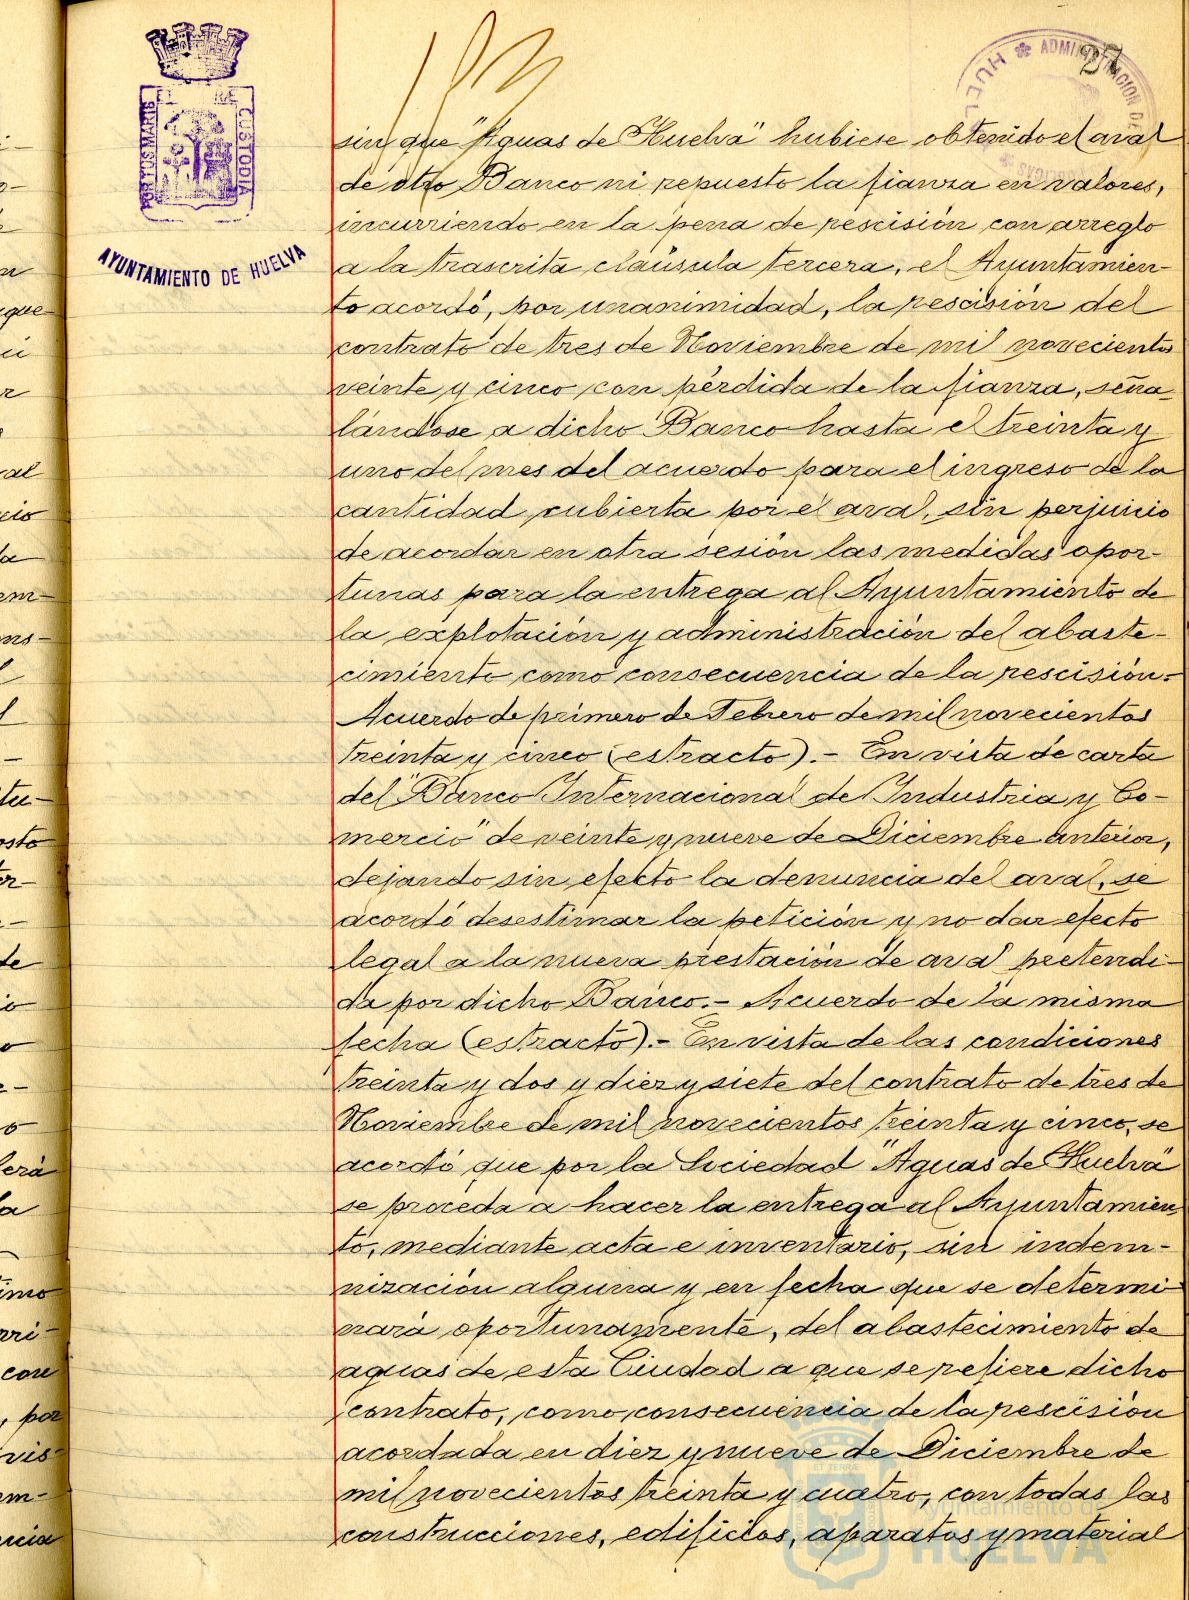 27
PORTUS MARIS
ET TERRE
CUSTODIA
AYUNTAMIENTO DE HUELVA
ADMINISTRACION DE
HUELVA
sin que "Aguas de Huelva" hubiese obtenido el aval
de otro Banco ni repuesto la fianza en valores,
incurriendo en la pena de rescisión con arreglo
a la trascrita cláusula tercera, el Ayuntamien-
to acordó, por unanimidad, la rescisión del
contrato de tres de Noviembre de mil novecientos
veinte y cinco con pérdida de la fianza, seña-
lándose a dicho Banco hasta el treinta y
uno del mes del acuerdo para el ingreso de la
cantidad cubierta por el aval, sin perjuicio
de acordar en otra sesión las medidas opor-
tunas para la entrega al Ayuntamiento de
la explotación y administración del abaste-
cimiento como consecuencia de la rescisión.-
Acuerdo de primero de Febrero de mil novecientos
treinta y cinco (estracto).- En vista de carta
del "Banco Internacional de Industria y Co-
mercio" de veinte y nueve de Diciembre anterior,
dejando sin efecto la denuncia del aval, se
acordó desestimar la petición y no dar efecto
legal a la nueva prestación de aval pretendi-
da por dicho Banco.- Acuerdo de la misma
fecha (estracto).- En vista de las condiciones
treinta y dos y diez y siete del contrato de tres de
Noviembre de mil novecientos treinta y cinco, se
acordó que por la Sociedad "Aguas de Huelva"
se proceda a hacer la entrega al Ayuntamien-
to, mediante acta e inventario, sin indem-
nización alguna y en fecha que se determi-
nará oportunamente, del abastecimiento de
aguas de esta Ciudad a que se refiere dicho
contrato, como consecuencia de la rescisión
acordada en diez y nueve de Diciembre de
mil novecientos treinta y cuatro, con todas las
construcciones, edificios, aparatos y material
Ayuntamiento de
HUELVA